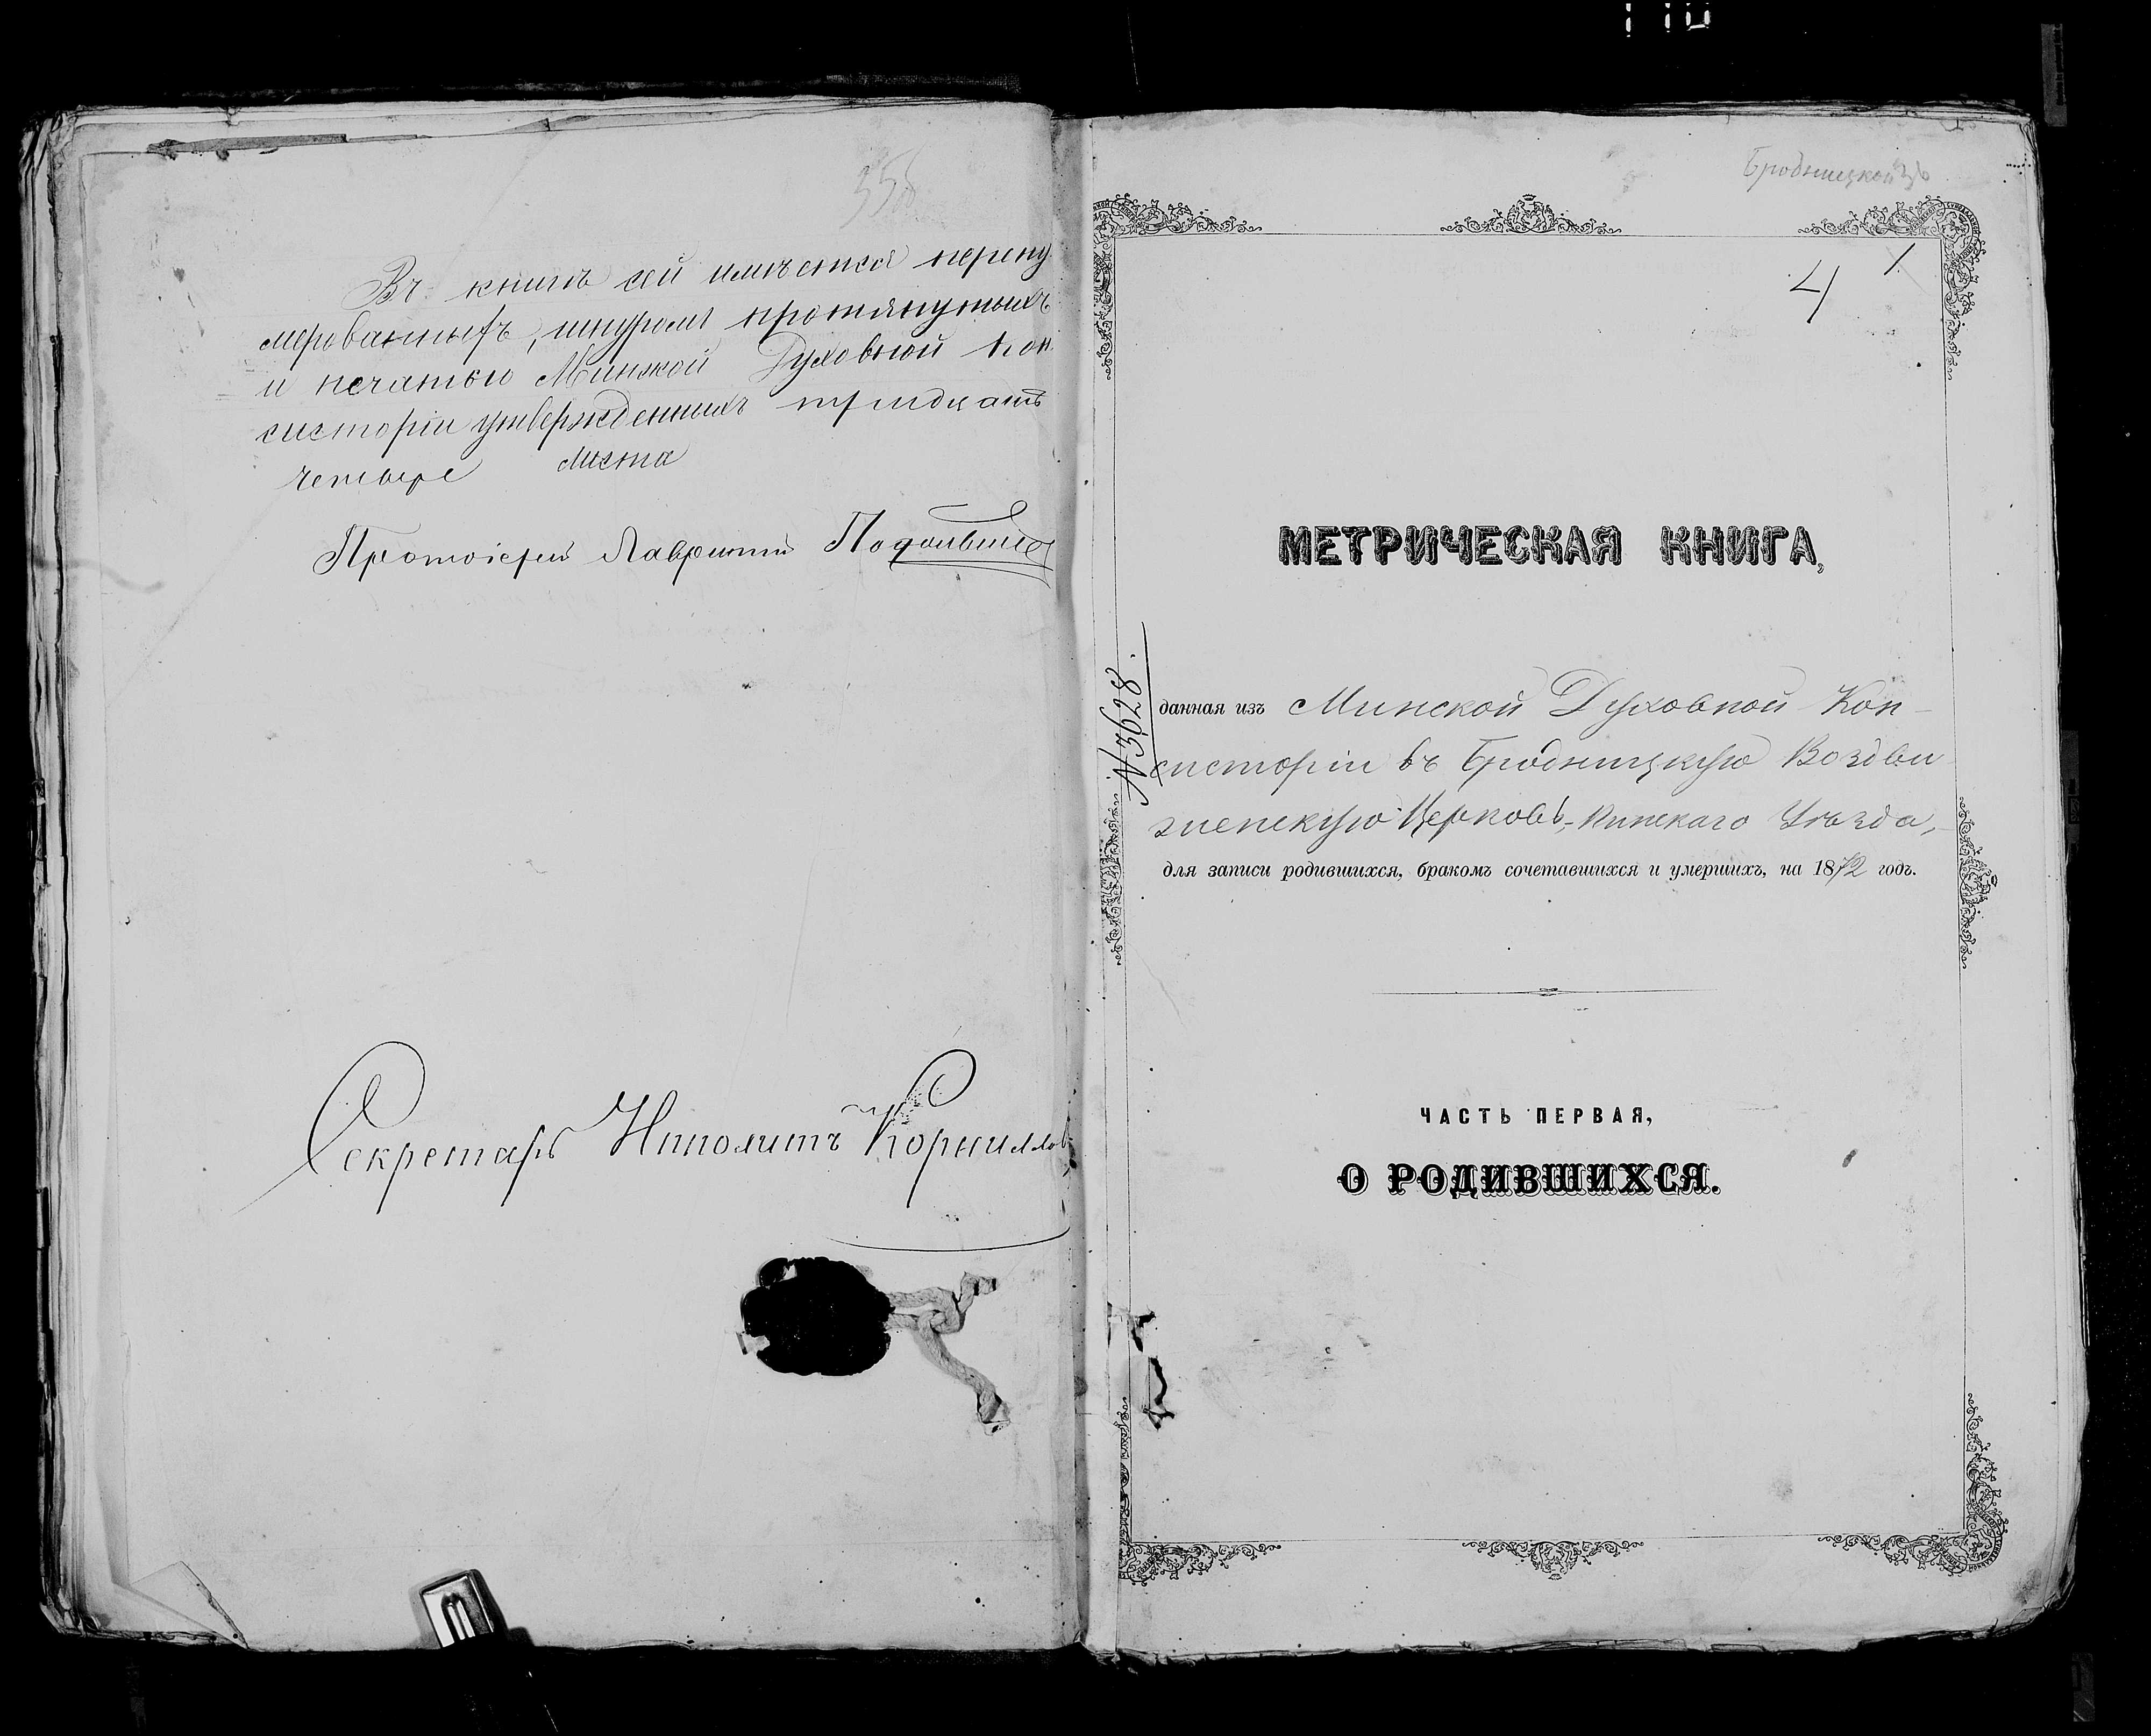 358
Въ книгѣ сей имѣется перену
мерованныхъ, шнуромъ протянутыхъ
и печатью Минской Духовной Кон
систоріи утвержденныхъ тридцать
четыре листа
Протоіерей Лаврентій
Секретарь Ипполитъ Корнилов
Бродницкой ц
4 1.
МЕТРИЧЕСКАЯ КНИГА,
№ 3628.
данная изъ Минской Духовной Кон-
систоріи въ Бродницкую Воздви
женскую Церковь, Пинскаго Уѣзда,
для записи родившихся, бракомъ сочетавшихся и умершихъ, на 1872 годъ.
ЧАСТЬ ПЕРВАЯ,
О РОДИВШИХСЯ.